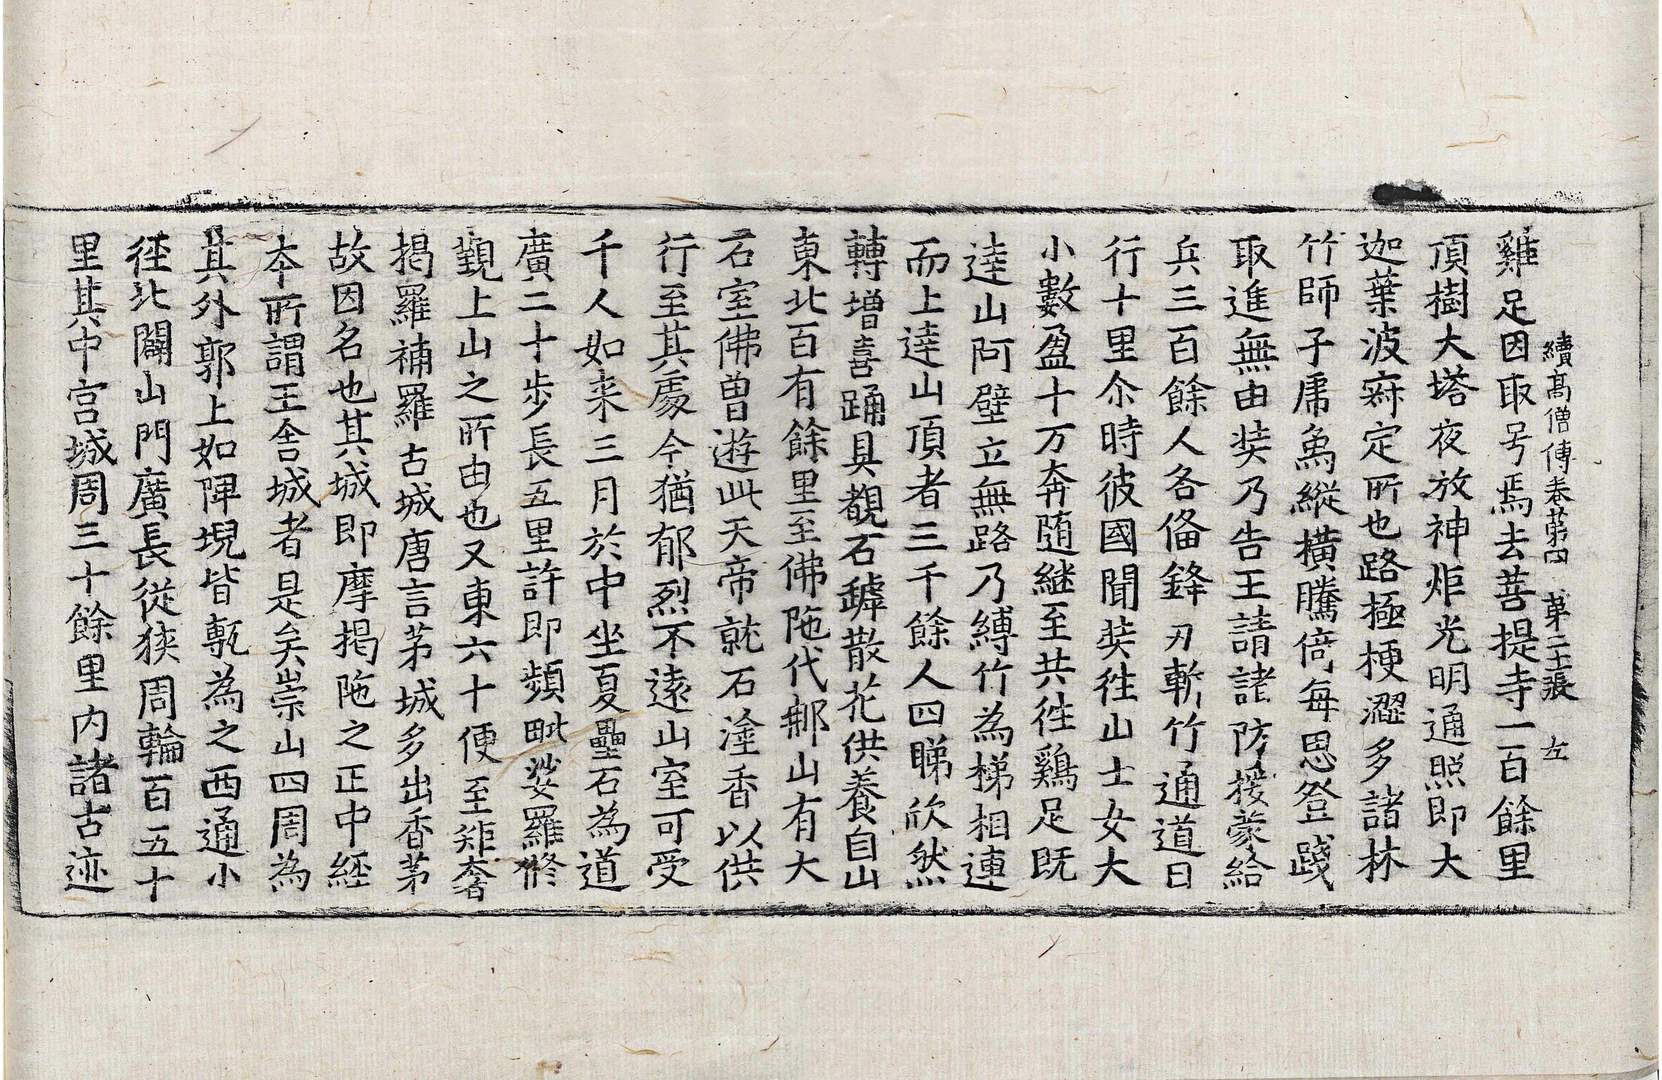 續高僧傳卷第四 第二十張 左
雞足因取号焉去菩提寺一百餘里
頂樹大塔夜放神炬光明通照即大
迦葉波㝛定所也路極梗澀多諸林
竹師子虎象縱橫騰倚每思登踐
取進無由奘乃告王請諸防援蒙給
兵三百餘人各俻鋒刃斬竹通道日
行十里尒時彼國聞奘徃山士女大
小數盈十万奔随継至共徃鷄足既
達山阿壁立無路乃縛竹為梯相連
而上達山頂者三千餘人四睇欣然
轉增喜踊具覩石罅散花供養自山
東北百有餘里至佛陁伐那山有大
石室佛曾遊此天帝就石塗香以供
行至其處今猶郁烈不遠山室可受
千人如来三月於中坐夏壘石為道
廣二十步長五里許即頻毗娑羅修
觀上山之所由也又東六十便至矩奢
揭羅補羅古城唐言茅城多出香茅
故因名也其城即摩揭陁之正中經
本所謂王舍城者是矣崇山四周為
其外郭上如陴堄皆甎為之西通小
徑北闢山門廣長從狹周輪百五十
里其中宮城周三十餘里內諸古迹